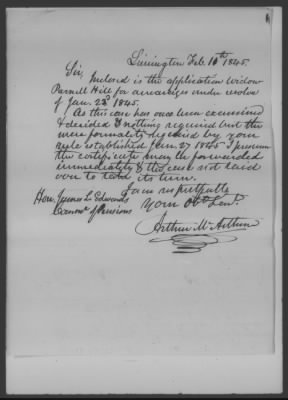 Limington Feb. 10th 1845.
Sir,
Inclosed is the application Widow
Parnell Hill for arrearages under resolve
of Jan. 23d 1845.
As this case has once been examined
& decided & nothing required but the
mere formality required by your
rule established Jan. 27 1845 I presume
the certificate may be forwarded
immediately & this case not laid
over to take its turn.
I am respectfully
Hon. James L. Edwards
Your Obt. Servt.
Commr. of Pensions
Arthur McArthur